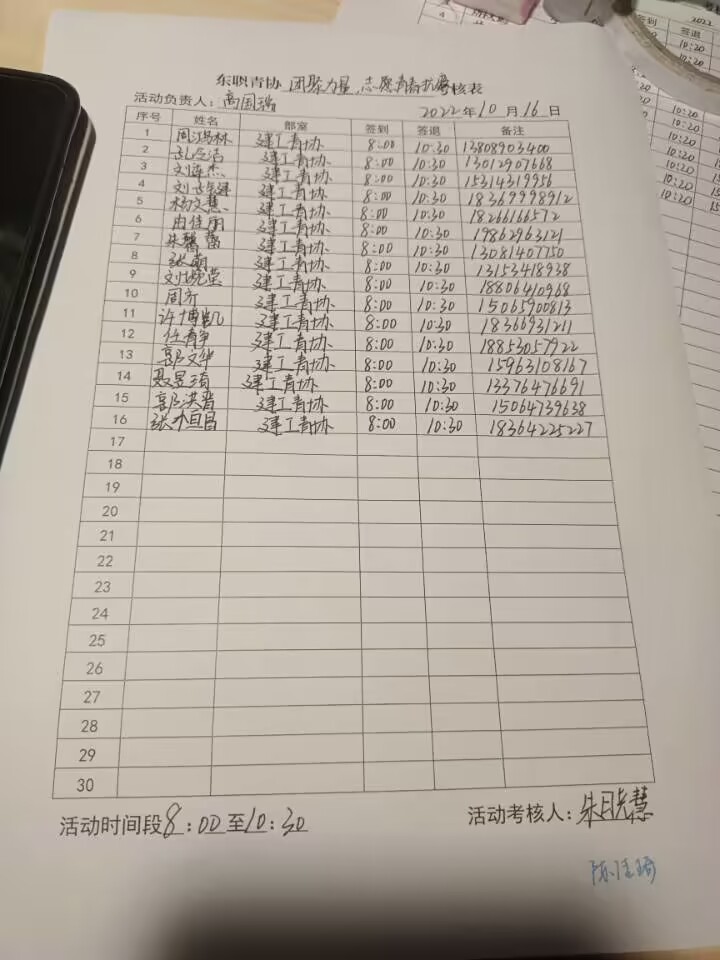 东职青协 团聚力量,志愿青春扩磨核表
活动负责人: 高国瑞 2022年10月16日
序号 姓名 部室 签到 签退 备注
1 建工青协 8:00 10:30 13808903400
2 建工青协 8:00 10:30 13012907668
3 刘海杰 建工青协 8:00 10:30 15314319956
4 建工青协 8:00 10:30 18369998912
5 杨文慧 建工青协 8:00 10:30 18266166572
6 由佳丽 建工青协 8:00 10:30 19862963121
7 朱馨蕾 建工青协 8:00 10:30 13081407750
8 张萌 建工青协 8:00 10:30 13153418938
9 刘晓莹 建工青协 8:00 10:30 18806410968
10 周齐 建工青协 8:00 10:30 15065900813
11 许博凯 建工青协 8:00 10:30 18366931211
12 任春宇 建工青协 8:00 10:30 18853057922
13 郭文华 建工青协 8:00 10:30 15963108167
14 聂昱琦 建工青协 8:00 10:30 13376476691
15 郭洪晋 建工青协 8:00 10:30 15064739638
16 建工青协 8:00 10:30 18364225227
17
18
19
20
21
22
23
24
25
26
27
28
29
30
活动时间段8:00至10:30 活动考核人: 朱晓慧
陈佳琦